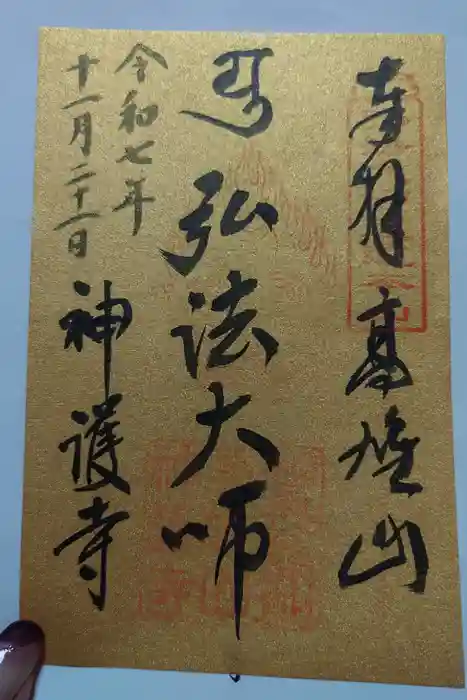 奉拝 高雄山
弘法大师
令和七年
十一月二十一日
神護寺